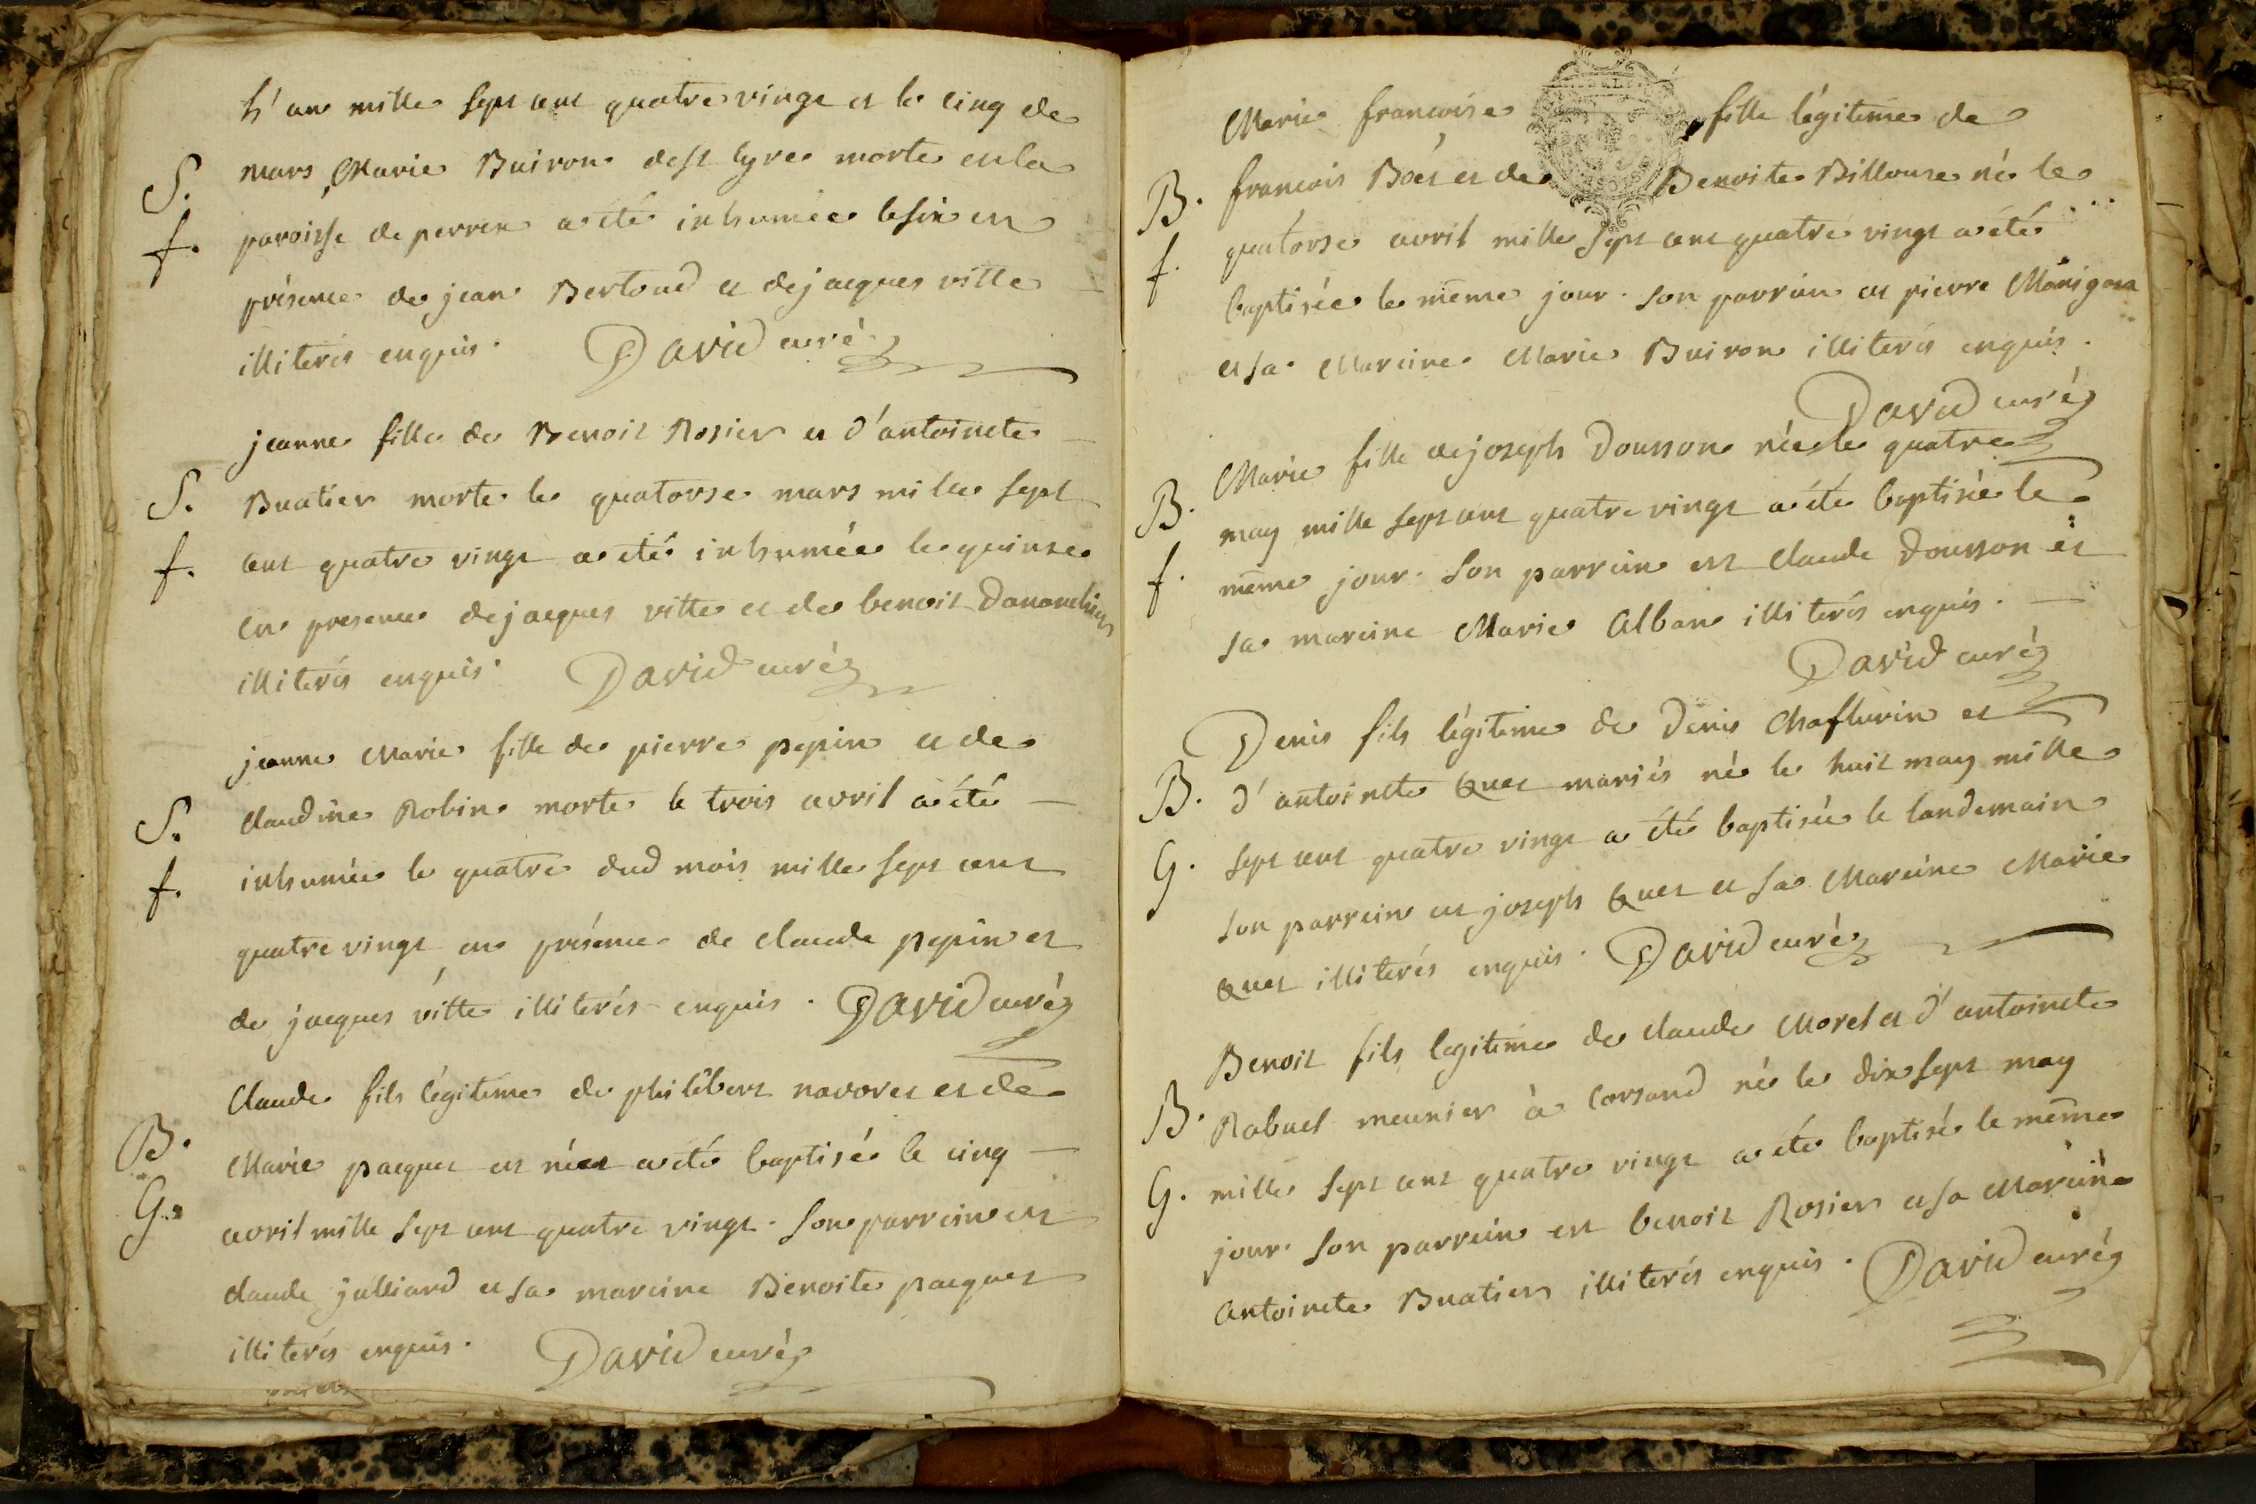 L'an mille sept cent quatre vingt et le cinq de
S. mars Marie Buiron de st Cyre morte en la
f. paroisse de perrex a été inhumée le six en
présence de jean Bertoud et de jacques vitte
illiterés enquis. David curé
jeanne fille de Benoit Rosier et d'antoinete
S. Buatier morte le quatorse mars mille sept
f. cent quatre vingt a été inhumée le quinse
en presence de jacques vitte et de benoit
illiterés enquis. David curé
jeanne Marie fille de pierre pepin et de
S. claudine Robin morte le trois avril a été
f. inhumée le quatre dud mois mille sept cent
quatre vingt en présence de claude pepin et
de jacques vitte illiterés enquis. David curé
Claude fils légitime de philibert navoret et de
B. Marie pacquet est né et a été baptisé le cinq
G. avril mille sept cent quatre vingt. son parrein est
claude julliard et sa mareine Benoite pacquet
illiterés enquis. David curé
Marie francoise fille légitime de
B. francois Boët et de Benoite Billouse né le
f. quatorse avril mille sept cent quatre vingt a été
baptisée le même jour. son parrein est pierre
et sa Mareine Marie Buiron illiterés enquis.
David curé
Marie fille de joseph Dousson née le quatre
B. may mille sept cent quatre vingt a été baptisée le
f. même jour. son parrein est claude Dousson et
sa mareine Marie Alban illiterés enquis.
David curé
Denis fils légitime de Denis Chaflurin et
B. d'antoinete Quet mariés né le huit may mille
G. sept cent quatre vingt a été baptisée le landemain
son parrein est joseph Quet et sa Mareine Marie
Quet illiterés enquis. David curé
Benoit fils legitime de claude Morel et d'antoinete
B. Rabuel meunier à Corsand né le dix sept may
G. mille sept cent quatre vingt a été baptisé le même
jour. son parrein est benoit Rosier et sa Mareine
antoinete Buatier illiterés enquis. David curé